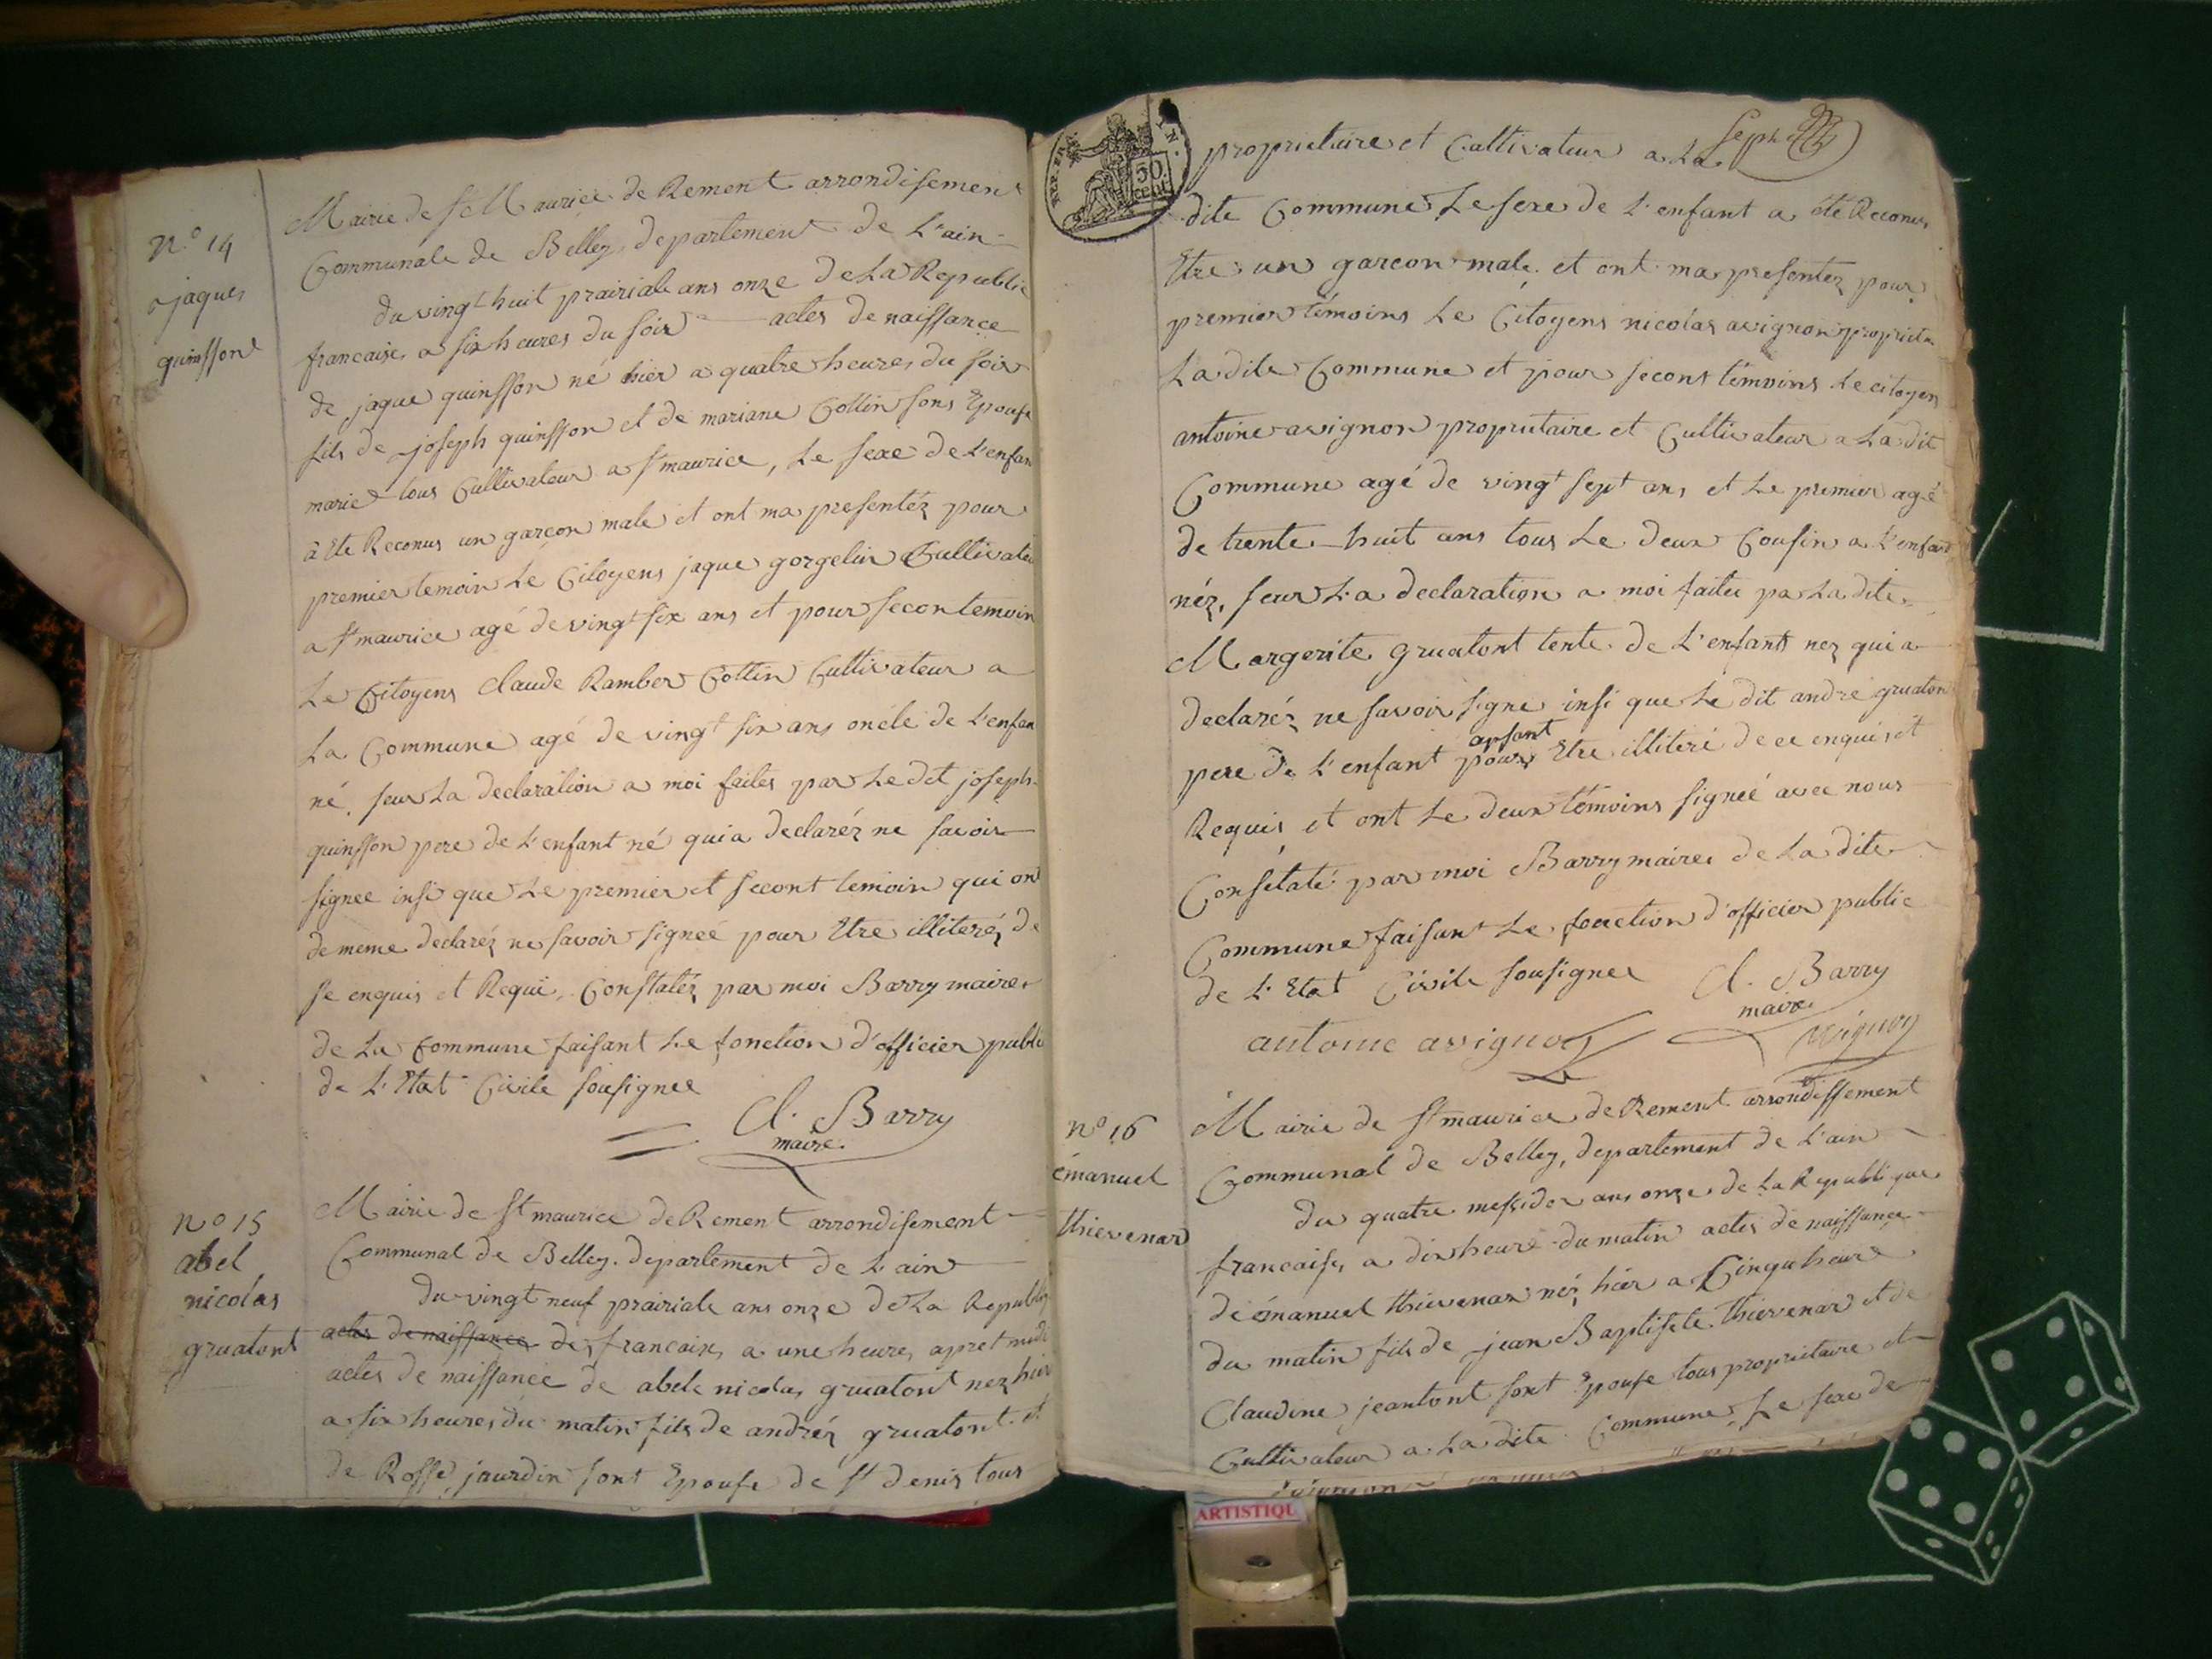 n.o 14
jaques
quinsson
Mairie de St Maurice de Rement arrondisement
Communale de Belley, departement de L'ain
du vingt huit prairiale ans onze de La Republic
francaise, a six heures du soir actes de naissance
de jaque quinsson né hier a quatre heures du soir
fils de joseph quinsson et de mariane Cottin sons Epouse
marié tous Cultivateur a St maurice, Le sexe de L'enfan
à Ete Reconus un garçon male et ont ma presentéz pour
premier temoin Le Citoyens jaque gorgelin Cultivateu
a St maurice agé de vingt six ans et pour secon temoin
Le Citoyens Claude Ramber Cottin Cultivateur a
La Commune agé de vingt six ans onéle de L'enfan
né, seur La declaration a moi faites par Le dit joseph
quinsson pere de L'enfant né qui a declaréz ne savoir
signee insi que Le premier et secont temoin qui ont
de meme declaréz ne savoir signée pour Etre illiteréz de
se enquis et Requi, Constatéz par moi Barry maire
de La Commune faisant Le fonction d'officier publi
de L'Etat Civile sousignee
Cl. Barry
maire
n.o 15
abel
nicolas
gruatont
Mairie de St maurice de Rement arrondisement
Communal de Belley. departement de L'ain
du vingt neuf prairiale ans onze de La Republiq
actes de naissance de francaise, a une heure, apret midi
actes de naissance de abele nicolas gruatont nez hier
a six heures du matin fils de andréz gruatont et
de Rosse jaurdin sont Epouse de St denis tous
REP. FRA.
50
cent
Sept
proprietaire et Cultivateur a La
dite Commune Le sexe de L'enfant a été Reconus
Etre un garcon male et ont ma presentez pour
premier témoins Le Citoyens nicolas avignon proprieta
La dite Commune et pour secons témoins Le citoyen
antoine avignon proprietaire et Cultivateur a La dit
Commune agé de vingt sept ans et Le premier agé
de trente huit ans tous Le deux Cousin a L'enfant
néz, seur La declaration a moi faitee pa La dite
Margerite gruatont tente de L'enfant nez qui a
declaréz ne savoir signe insi que Le dit andré gruaton
pere de L'enfant pour Etre illiteré de ce enquis et
Requis, et ont Le deux témoins signeé avec nous
Consétaté par moi Barry maire de La dite
Commune faisant Le fonction d'officier public
de L'Etat Civile sousignee
Cl. Barry
maire
antoine avignon
avignon
n.o 16
émanuel
thievenar
Mairie de St maurice de Rement arrondissement
Communal de Belley, departement de L'ain
du quatre messidor ans onze de La Republique
francaise, a dix heure du matin actes de naissance
de émanuel thievenar néz hier a Cinque heure
du matin fils de jean Baptiste thievenar et de
Claudine jeantont sont Epouse tous proprietaire et
Cultivateur a La dite Commune, Le sexe de
ARTISTIQU